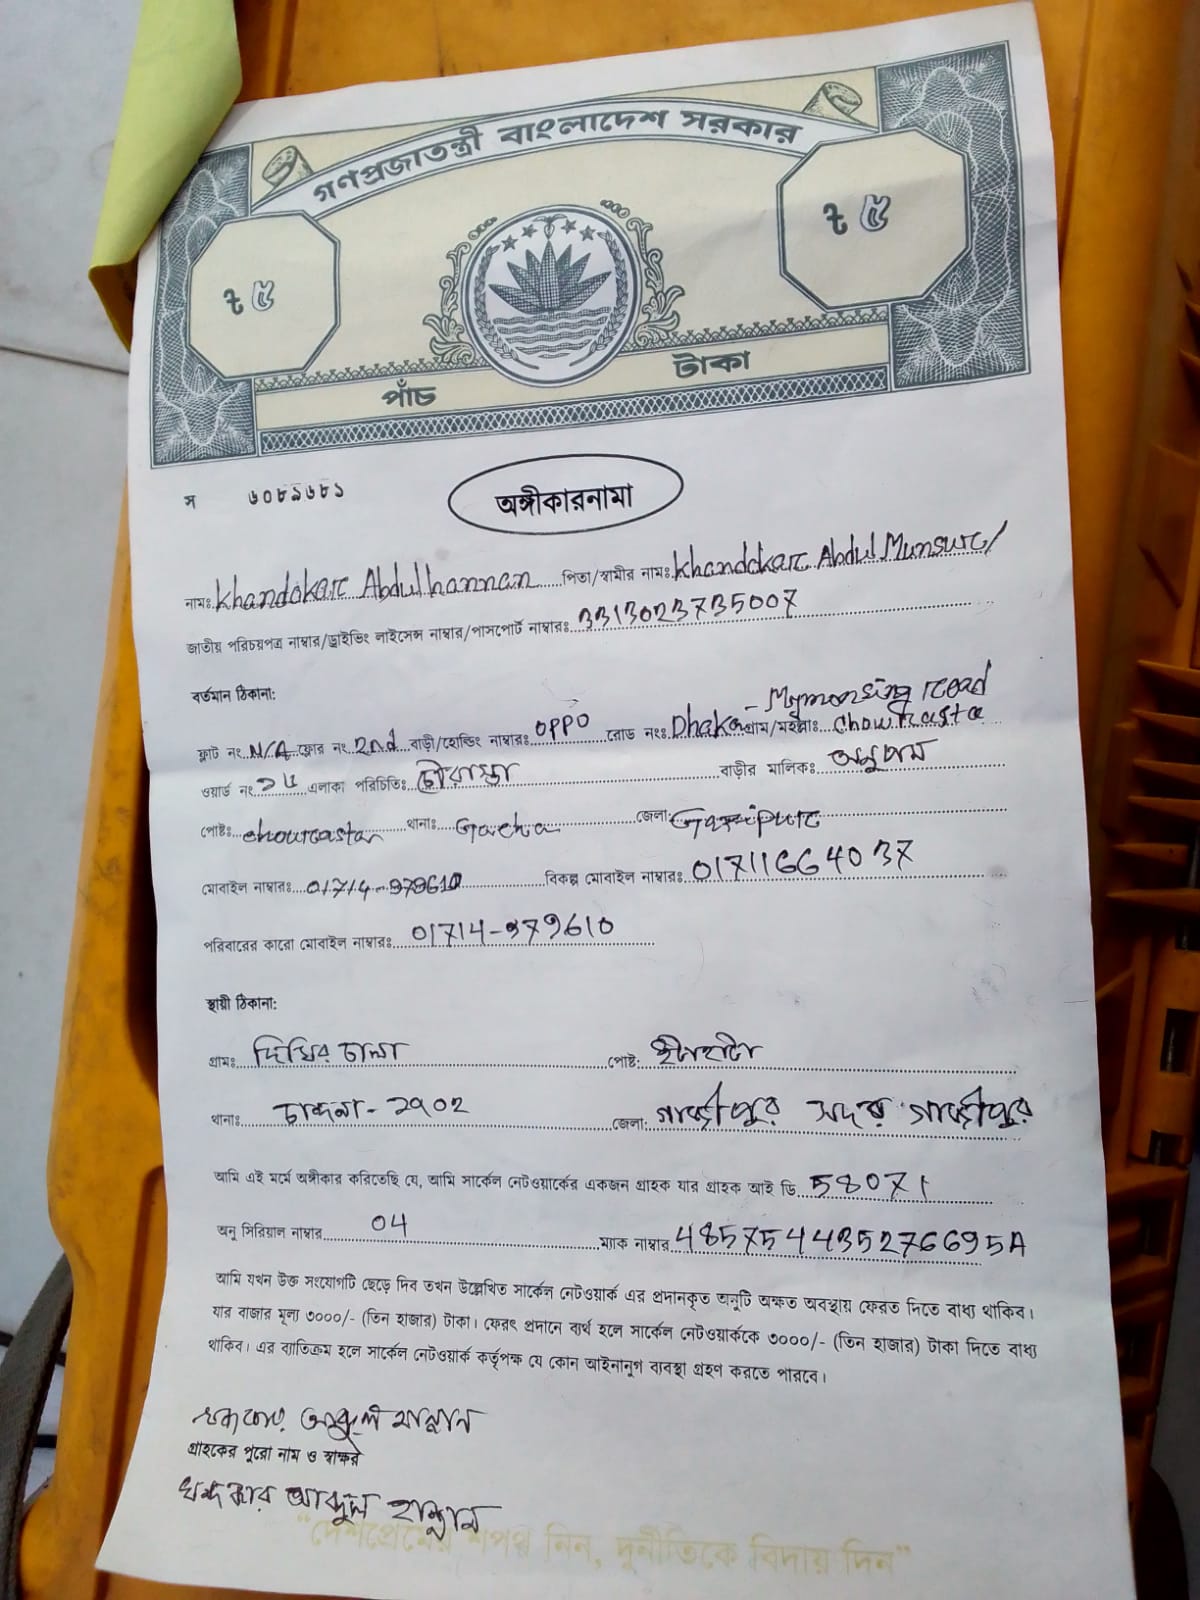 গণপ্রজাতন্ত্রী বাংলাদেশ সরকার
৳ ৫
৳ ৫
পাঁচ টাকা
স ৬০৮৯৬৮১
অঙ্গীকারনামা
নামঃ Khandokar Abdul hannan পিতা/স্বামীর নামঃ Khandokar Abdul Munsur
জাতীয় পরিচয়পত্র নাম্বার/ড্রাইভিং লাইসেন্স নাম্বার/পাসপোর্ট নাম্বারঃ 3313023735007
বর্তমান ঠিকানা:
ফ্লাট নং N/A ফ্লোর নং 2nd বাড়ী/হোল্ডিং নাম্বারঃ OPPO রোড নংঃ Dhaka - Mymonsing road গ্রাম/মহল্লাঃ Chowrasta
ওয়ার্ড নং এলাকা পরিচিতিঃ চৌরাস্তা বাড়ীর মালিকঃ অনুপম
পোষ্টঃ chowrasta থানাঃ Gacha জেলা: Gazipur
মোবাইল নাম্বারঃ 01714-979610 বিকল্প মোবাইল নাম্বারঃ 01711664037
পরিবারের কারো মোবাইল নাম্বারঃ 01714-979610
স্থায়ী ঠিকানা:
গ্রামঃ দিঘির চালা পোষ্ট:
থানাঃ চান্দনা - ১৭০২ জেলা: গাজীপুর সদর গাজীপুর
আমি এই মর্মে অঙ্গীকার করিতেছি যে, আমি সার্কেল নেটওয়ার্কের একজন গ্রাহক যার গ্রাহক আই ডি 58071
অনু সিরিয়াল নাম্বার 04 ম্যাক নাম্বার 485754435276695A
আমি যখন উক্ত সংযোগটি ছেড়ে দিব তখন উল্লেখিত সার্কেল নেটওয়ার্ক এর প্রদানকৃত অনুটি অক্ষত অবস্থায় ফেরত দিতে বাধ্য থাকিব।
যার বাজার মূল্য ৩০০০/- (তিন হাজার) টাকা। ফেরৎ প্রদানে ব্যর্থ হলে সার্কেল নেটওয়ার্ককে ৩০০০/- (তিন হাজার) টাকা দিতে বাধ্য
থাকিব। এর ব্যতিক্রম হলে সার্কেল নেটওয়ার্ক কর্তৃপক্ষ যে কোন আইনানুগ ব্যবস্থা গ্রহণ করতে পারবে।
খন্দকার আব্দুল হান্নান
গ্রাহকের পুরো নাম ও স্বাক্ষর
খন্দকার আব্দুল হান্নান
"দেশপ্রেমের শপথ নিন, দুর্নীতিকে বিদায় দিন"